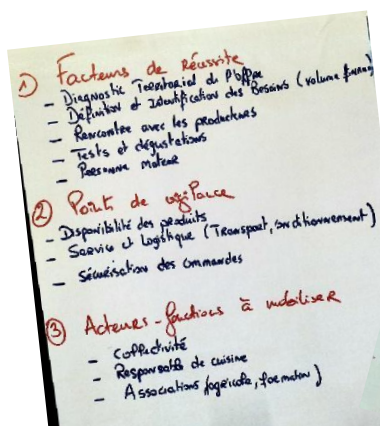 1) Facteurs de réussite
- Diagnostic Territorial du
- Définition et Identification des Besoins (volume financ
- Rencontre avec les producteurs
- Tests et dégustations
- Personne moteur
2 Point de vigilance
- Disponibilité des produits
- Service et Logistique (Transport, conditionnement)
- Sécurisation des commandes
3 Acteurs - fonctions à mobiliser
- Collectivité
- Responsable de cuisine
- Associations (agricole, formation)